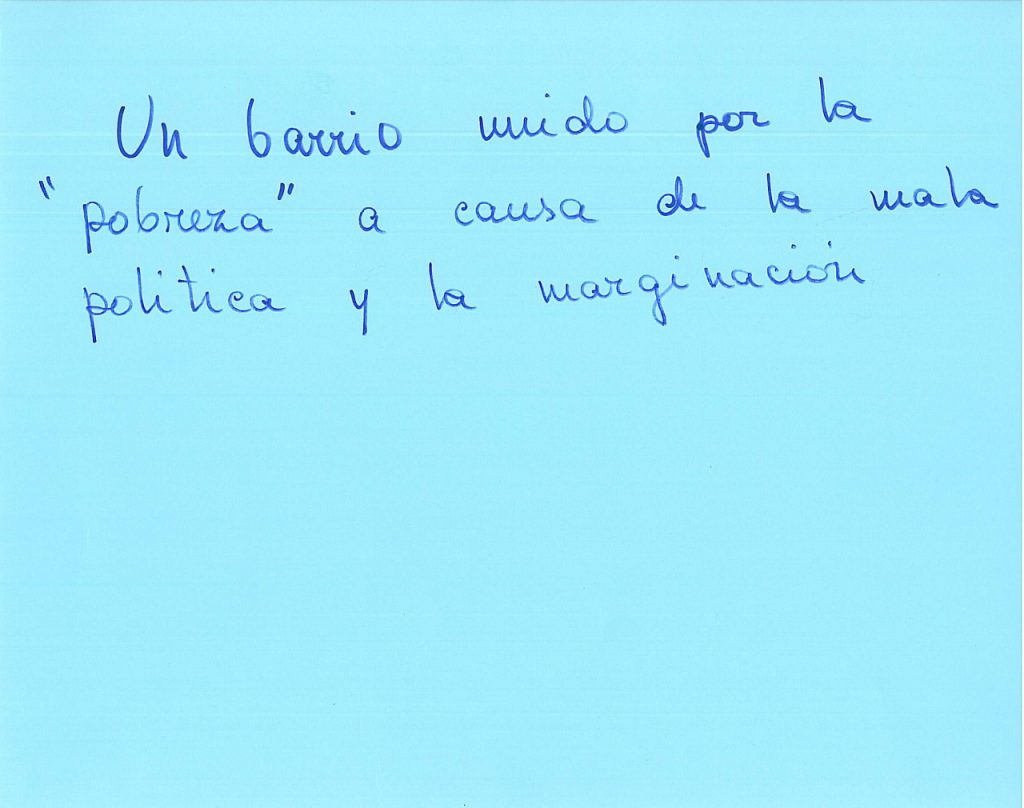 Un barrio unido por la
"pobreza" a causa de la mala
politica y la marginación